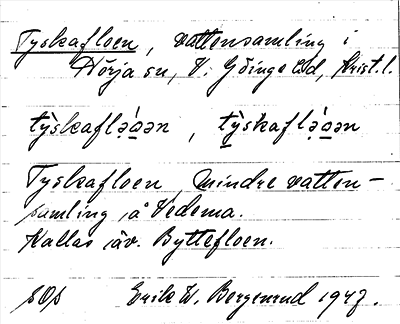 Tyskafloen, vattensamling i
Hörja sn, V. Göinge hd, Krist. l.
tỳskaflə̀ən, tỳskaflə̀ən
Tyskafloen, mindre vatten-
samling å Vedema.
Kallas äv. Byttefloen.
SOS Erik W. Bergenrud 1947.